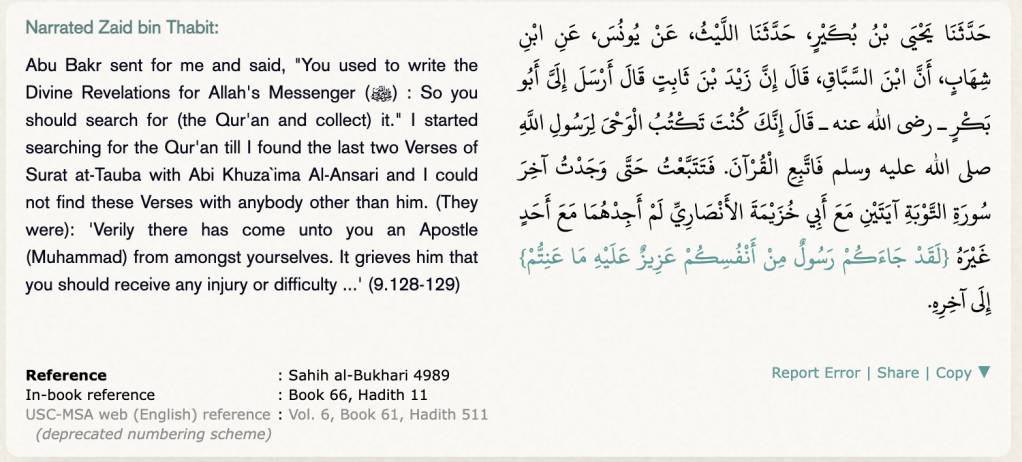 Narrated Zaid bin Thabit:
Abu Bakr sent for me and said, "You used to write the
Divine Revelations for Allah's Messenger (ﷺ) : So you
should search for (the Qur'an and collect) it." I started
searching for the Qur'an till I found the last two Verses of
Surat at-Tauba with Abi Khuza`ima Al-Ansari and I could
not find these Verses with anybody other than him. (They
were): 'Verily there has come unto you an Apostle
(Muhammad) from amongst yourselves. It grieves him that
you should receive any injury or difficulty ...' (9.128-129)
حَدَّثَنَا يَحْيَى بْنُ بُكَيْرٍ، حَدَّثَنَا اللَّيْثُ، عَنْ يُونُسَ، عَنِ ابْنِ
شِهَابٍ، أَنَّ ابْنَ السَّبَّاقِ، قَالَ إِنَّ زَيْدَ بْنَ ثَابِتٍ قَالَ أَرْسَلَ إِلَىَّ أَبُو
بَكْرٍ ـ رضى الله عنه ـ قَالَ إِنَّكَ كُنْتَ تَكْتُبُ الْوَحْىَ لِرَسُولِ اللَّهِ
صلى الله عليه وسلم فَاتَّبِعِ الْقُرْآنَ‏.‏ فَتَتَبَّعْتُ حَتَّى وَجَدْتُ آخِرَ
سُورَةِ التَّوْبَةِ آيَتَيْنِ مَعَ أَبِي خُزَيْمَةَ الأَنْصَارِيِّ لَمْ أَجِدْهُمَا مَعَ أَحَدٍ
غَيْرَهُ ‏{‏لَقَدْ جَاءَكُمْ رَسُولٌ مِنْ أَنْفُسِكُمْ عَزِيزٌ عَلَيْهِ مَا عَنِتُّمْ‏}‏
إِلَى آخِرِهِ‏.‏
Reference : Sahih al-Bukhari 4989
In-book reference : Book 66, Hadith 11
USC-MSA web (English) reference : Vol. 6, Book 61, Hadith 511
(deprecated numbering scheme)
Report Error | Share | Copy ▼